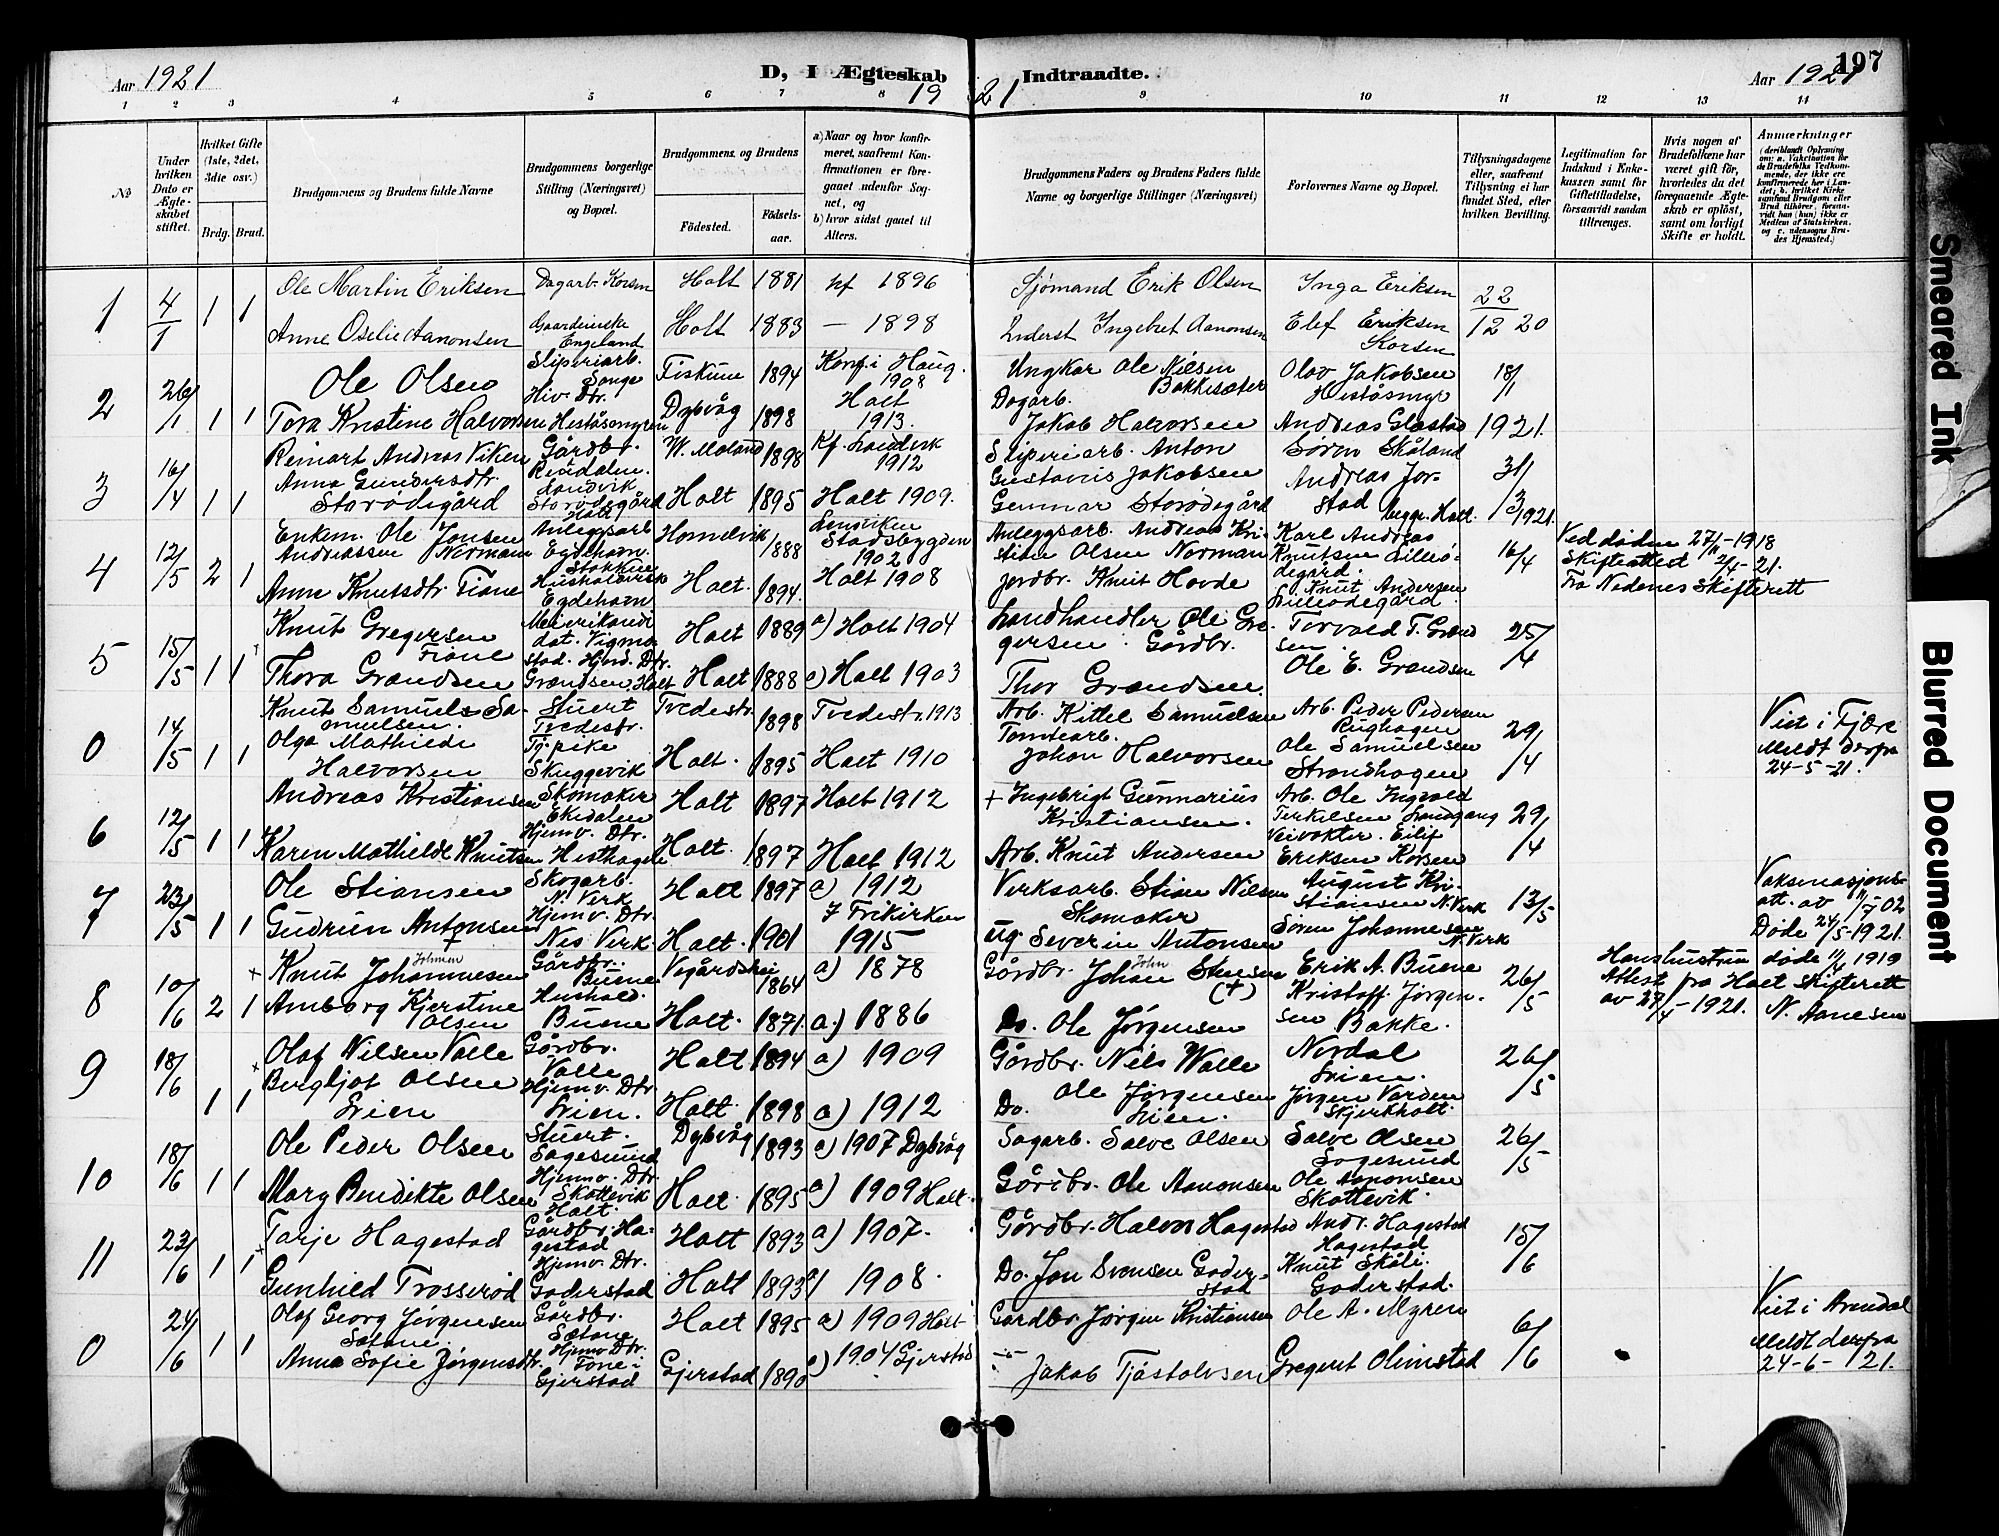 Aar 1921
D, I Ægteskab Indtraadte.
19 21
Aar 1921
197
1 2 3 4 5 6 7 8 9 10 11 12 13 14
№
Under hvilken Dato er Ægteskabet stiftet.
Hvilket Gifte (1ste, 2det, 3die osv.)
Brdg. Brud.
Brudgommens og Brudens fulde Navne
Brudgommens borgerlige Stilling (Næringsvei) og Bopæl.
Brudgommens og Brudens
Fødested.
Fødselsaar.
a) Naar og hvor konfirmeret, saafremt Konfirmationen er foregaaet udenfor Sognet, og
b) hvor sidst gaaet til Alters.
Brudgommens Faders og Brudens Faders fulde Navne og borgerlige Stillinger (Næringsvei)
Forlovernes Navne og Bopæl.
Tillysningsdagene eller, saafremt Tillysning ei har fundet Sted, efter hvilken Bevilling.
Legitimation for Indskud i Enkekassen samt for Giftetilladelse, forsaavidt saadan tiltrænges.
Hvis nogen af Brudefolkene har været gift før, hvorledes da det foregaaende Ægteskab er opløst, samt om lovligt Skifte er holdt.
Anmærkninger
(deriblandt Oplysning om: a. Vakcination for de Brudefolks Vedkommende, der ikke ere konfirmerede her i Landet; b. hvilket Kirkesamfund Brudgom eller Brud tilhører, forsaavidt han (hun) ikke er Medlem af Statskirken, og c. udensogns Brudes Hjemsted.)
1 4/1 1 1 Ole Martin Eriksen Dagarb. Korsen Holt 1881 kf 1896 Sjømand Erik Olsen Inga Eriksen 22/12 20
Anne Oselie Aanonsen Gaardeierske Engeland Holt 1883 — 1898 Inderst Ingebret Aanonsen Elef Eriksen Korsen
2 26/1 1 1 Ole Olsen Sliperiarb. Songe Fiskum 1894 Konf. i Haug. 1908 Ungkar Ole Nilsen Bakkesæter Olav Jakobsen Heståsmyr 18/1
Tora Kristine Halvorsen Hjv. Dtr. Heståsmyren Dybvåg 1898 Holt 1913. Dagarb. Jakob Halvorsen Andreas Glastad 1921.
3 16/4 1 1 Reinart Andreas Viken Gårdbr. Rendalen. Landvik W. Moland 1898 Kf. Landvik 1912 Sliperiarb. Anton Gustavus Jakobsen Søren Skåland 31/3 1921.
Anna Gundersdtr. Storødegård Storødegård Holt Holt 1895 Holt 1909. Gunnar Storødegård Andreas Jorstad begge Holt.
4 12/5 2 1 Enkem. Ole Jonsen Andreassen Norman Anleggsarb. Egdehavn. Stokken Homelvik 1888 Lensviken Stadsbygden 1902 Anleggsarb. Andreas Kristian Olsen Norman Karl Andreas Knutsen Lilleødegård. 16/4 Ved døden 27/11-1918 Skifteattest 2/4-21. Fra Nedenes Skifterett
Anne Knutsdtr. Fiane Husholderske Egdehavn Holt. 1894. Holt 1908 jordbr. Knut Hovde Knut Andersen Lilleødegård.
5 15/5 1 1 Knut Gregersen Fiane Meierikandidat. Vigmostad. Holt 1889 a) Holt 1904 Landhandler Ole Gregersen Torvald T. Grændsen 25/4
Thora Grændsen Hjv. Dtr. Grændsen, Holt Holt 1888 a) Holt 1903 Gårdbr. Thor Grændsen. Ole E. Grændsen
0 14/5 1 1 Knut Samuels Samuelsen. Stuert Tvedestr. Tvedestr. 1898 Tvedestr. 1913 Arb. Kittel Samuelsen Arb. Peder Pedersen Rughagen 29/4 Viet i Fjære Meldt derfra 24-5-21.
Olga Mathilde Halvorsen Tj. pike Skuggevik Holt. 1895 Holt 1910 Tomtearb. Johan Halvorsen Ole Samuelsen Strandhagen
6 12/5 1 1 Andreas Kristiansen Skomaker Ekedalen Holt 1897 Holt 1912 + Ingebrigt Gunnarius Kristiansen. Arb. Ole Ingvald Terkelsen Landgang 29/4
Karen Mathilde Knutsen Hjemv. Dtr. Hesthagen Holt. 1897 Holt 1912 Arb. Knut Andersen Veivokter. Eilif Eriksen Korsen
7 23/5 1 1 Ole Stiansen Skogarb. N. Verk Holt 1897 a) 1912 Verksarb. Stian Nilsen August Kristiansen N. Verk 13/5 Vaksenasjonsatt. av 11/7 02
Gudrun Antonsen Hjemv. Dtr. Nes Verk. Holt. 1901 I Frikirken 1915 Skomaker Severin Antonsen Søren Johannesen N. Verk Døde 24/5-1921.
8 10/6 2 1 Knut Johannesen Johnsen Gårdbr. Buene Vegårdshei 1864 a) 1878 Gårdbr. Johan John (+) Erik A. Buene 26/5 Hans hustru døde 11/4 1919 Attest fra Holt Skifterett av 27/4-1921. N. Aanesen
Amborg Kjerstine Olsen Hushold. Buene Holt. 1871. a.) 1886 Do. Ole Jørgensen Kristoff. Jørgensen Bakke.
9 18/6 1 1 Olaf Nilsen Valle Gårdbr. Valle Holt 1894 a) 1909 Gårdbr. Nils Walle Nordal Lien. 26/5
Bergljot Olsen Lien Hjemv. Dtr. Lien. Holt. 1898 a) 1912 Do. Ole Jørgensen Lien. Jørgen Varden Skjerkholt.
10 18/6 1 1 Ole Peder Olsen Stuert. Sagesund Dybvåg 1893 a) 1907 Dybvåg Sagarb. Salve Olsen Salve Olsen Sagesund 26/5
Mary Benedikte Olsen Hjemv. Dtr. Skottevik Holt. Holt. 1895 a) 1909 Holt. Gårdbr. Ole Aanonsen Ole Aanonsen Skottevik.
11 23/6 1 1 Tarje Hagestad Gårdbr. Hagestad Holt 1893 a) 1907. Gårdbr. Halvor Hagestad Andr. Hagestad Hagestad 15/6
Gunhild Trosserød Hjemv. Dtr. Goderstad Holt 1893 a) 1908. Do. Jon Svensen Goderstad Knut Skåli Goderstad.
0 24/6 1 1 Olaf Georg Jørgensen Sætane. Gårdbr. Sætane Holt 1895 a) 1909 Holt Gårdbr. Jørgen Kristiansen Ole A. Myren 6/6 Viet i Arendal Meldt derfra 24-6-21.
Anna Sofie Jørgensdtr. Hjemv. Dtr. Tone i Gjerstad Gjerstad 1890 a) 1904 Gjerstad Jakob Tjøstolvsen Gregert Olimstad
Smeared Ink
Blurred Document